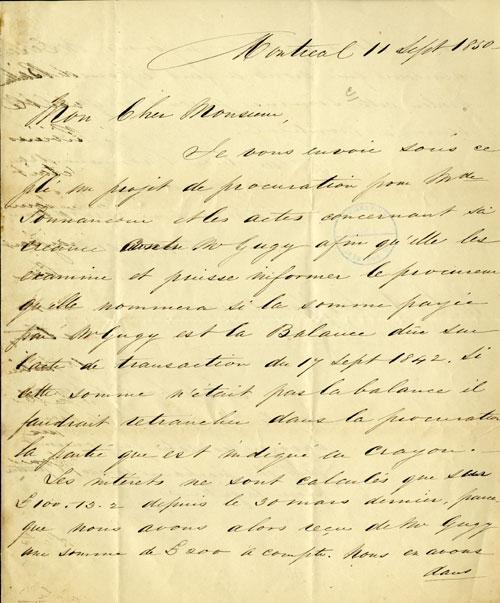 Montreal 11 Sept 1850
Mon Cher Monsieur,
Je vous envoie sous ce
pli un projet de procuration pour Mde
Tonnancour et les actes concernant sa
créance contre Mr Gugy afin qu'elle les
examine et puisse informer le procureur
qu'elle nommera si la somme payée
par Mr Gugy est la Balance düe sur
l'acte de transaction du 17 Sept 1842. Si
cette somme n'était pas la balance il
faudrait retrancher dans la procuration
la partie que est indiqué en crayon. –
Les intérets ne sont calculés que sur
£100.13.2 depuis le 20 mars dernier, parce
que nous avons alors reçu de Mr Gugy
une somme de £200 à compte. Nous en avons
dans